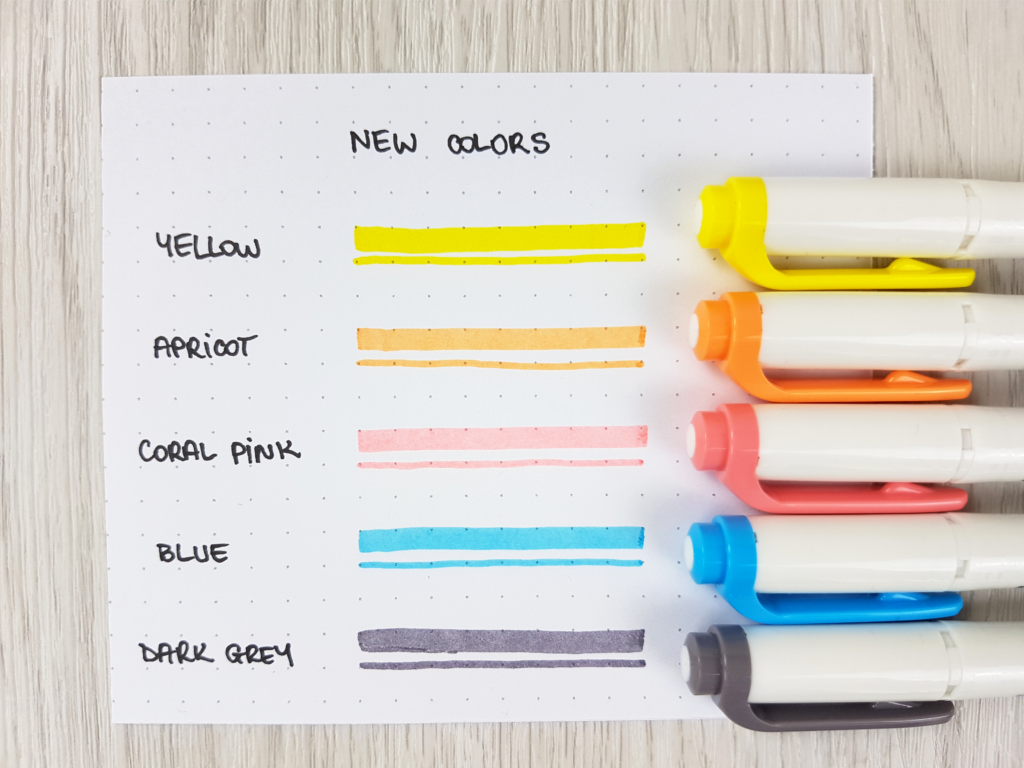 NEW COLORS
YELLOW
APRICOT
CORAL PINK
BLUE
DARK GREY